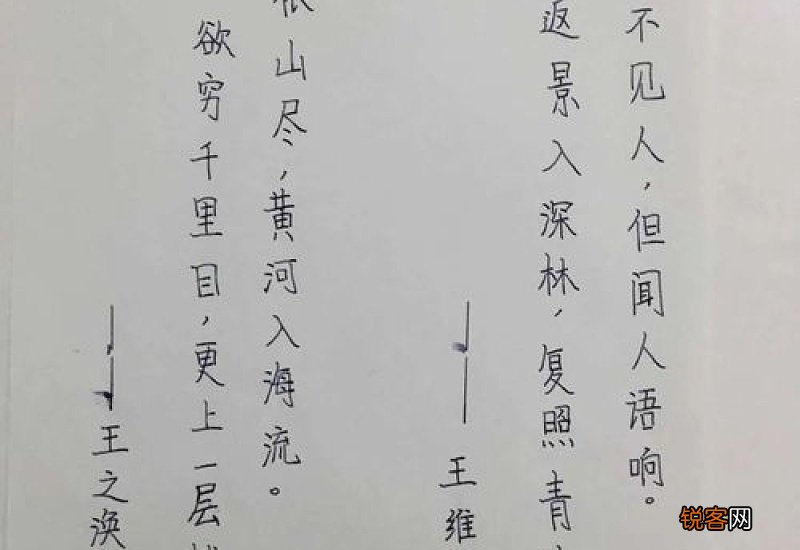 不见人，但闻人语响。
返景入深林，复照青
王维
山尽，黄河入海流。
欲穷千里目，更上一层
王之涣
锐客网